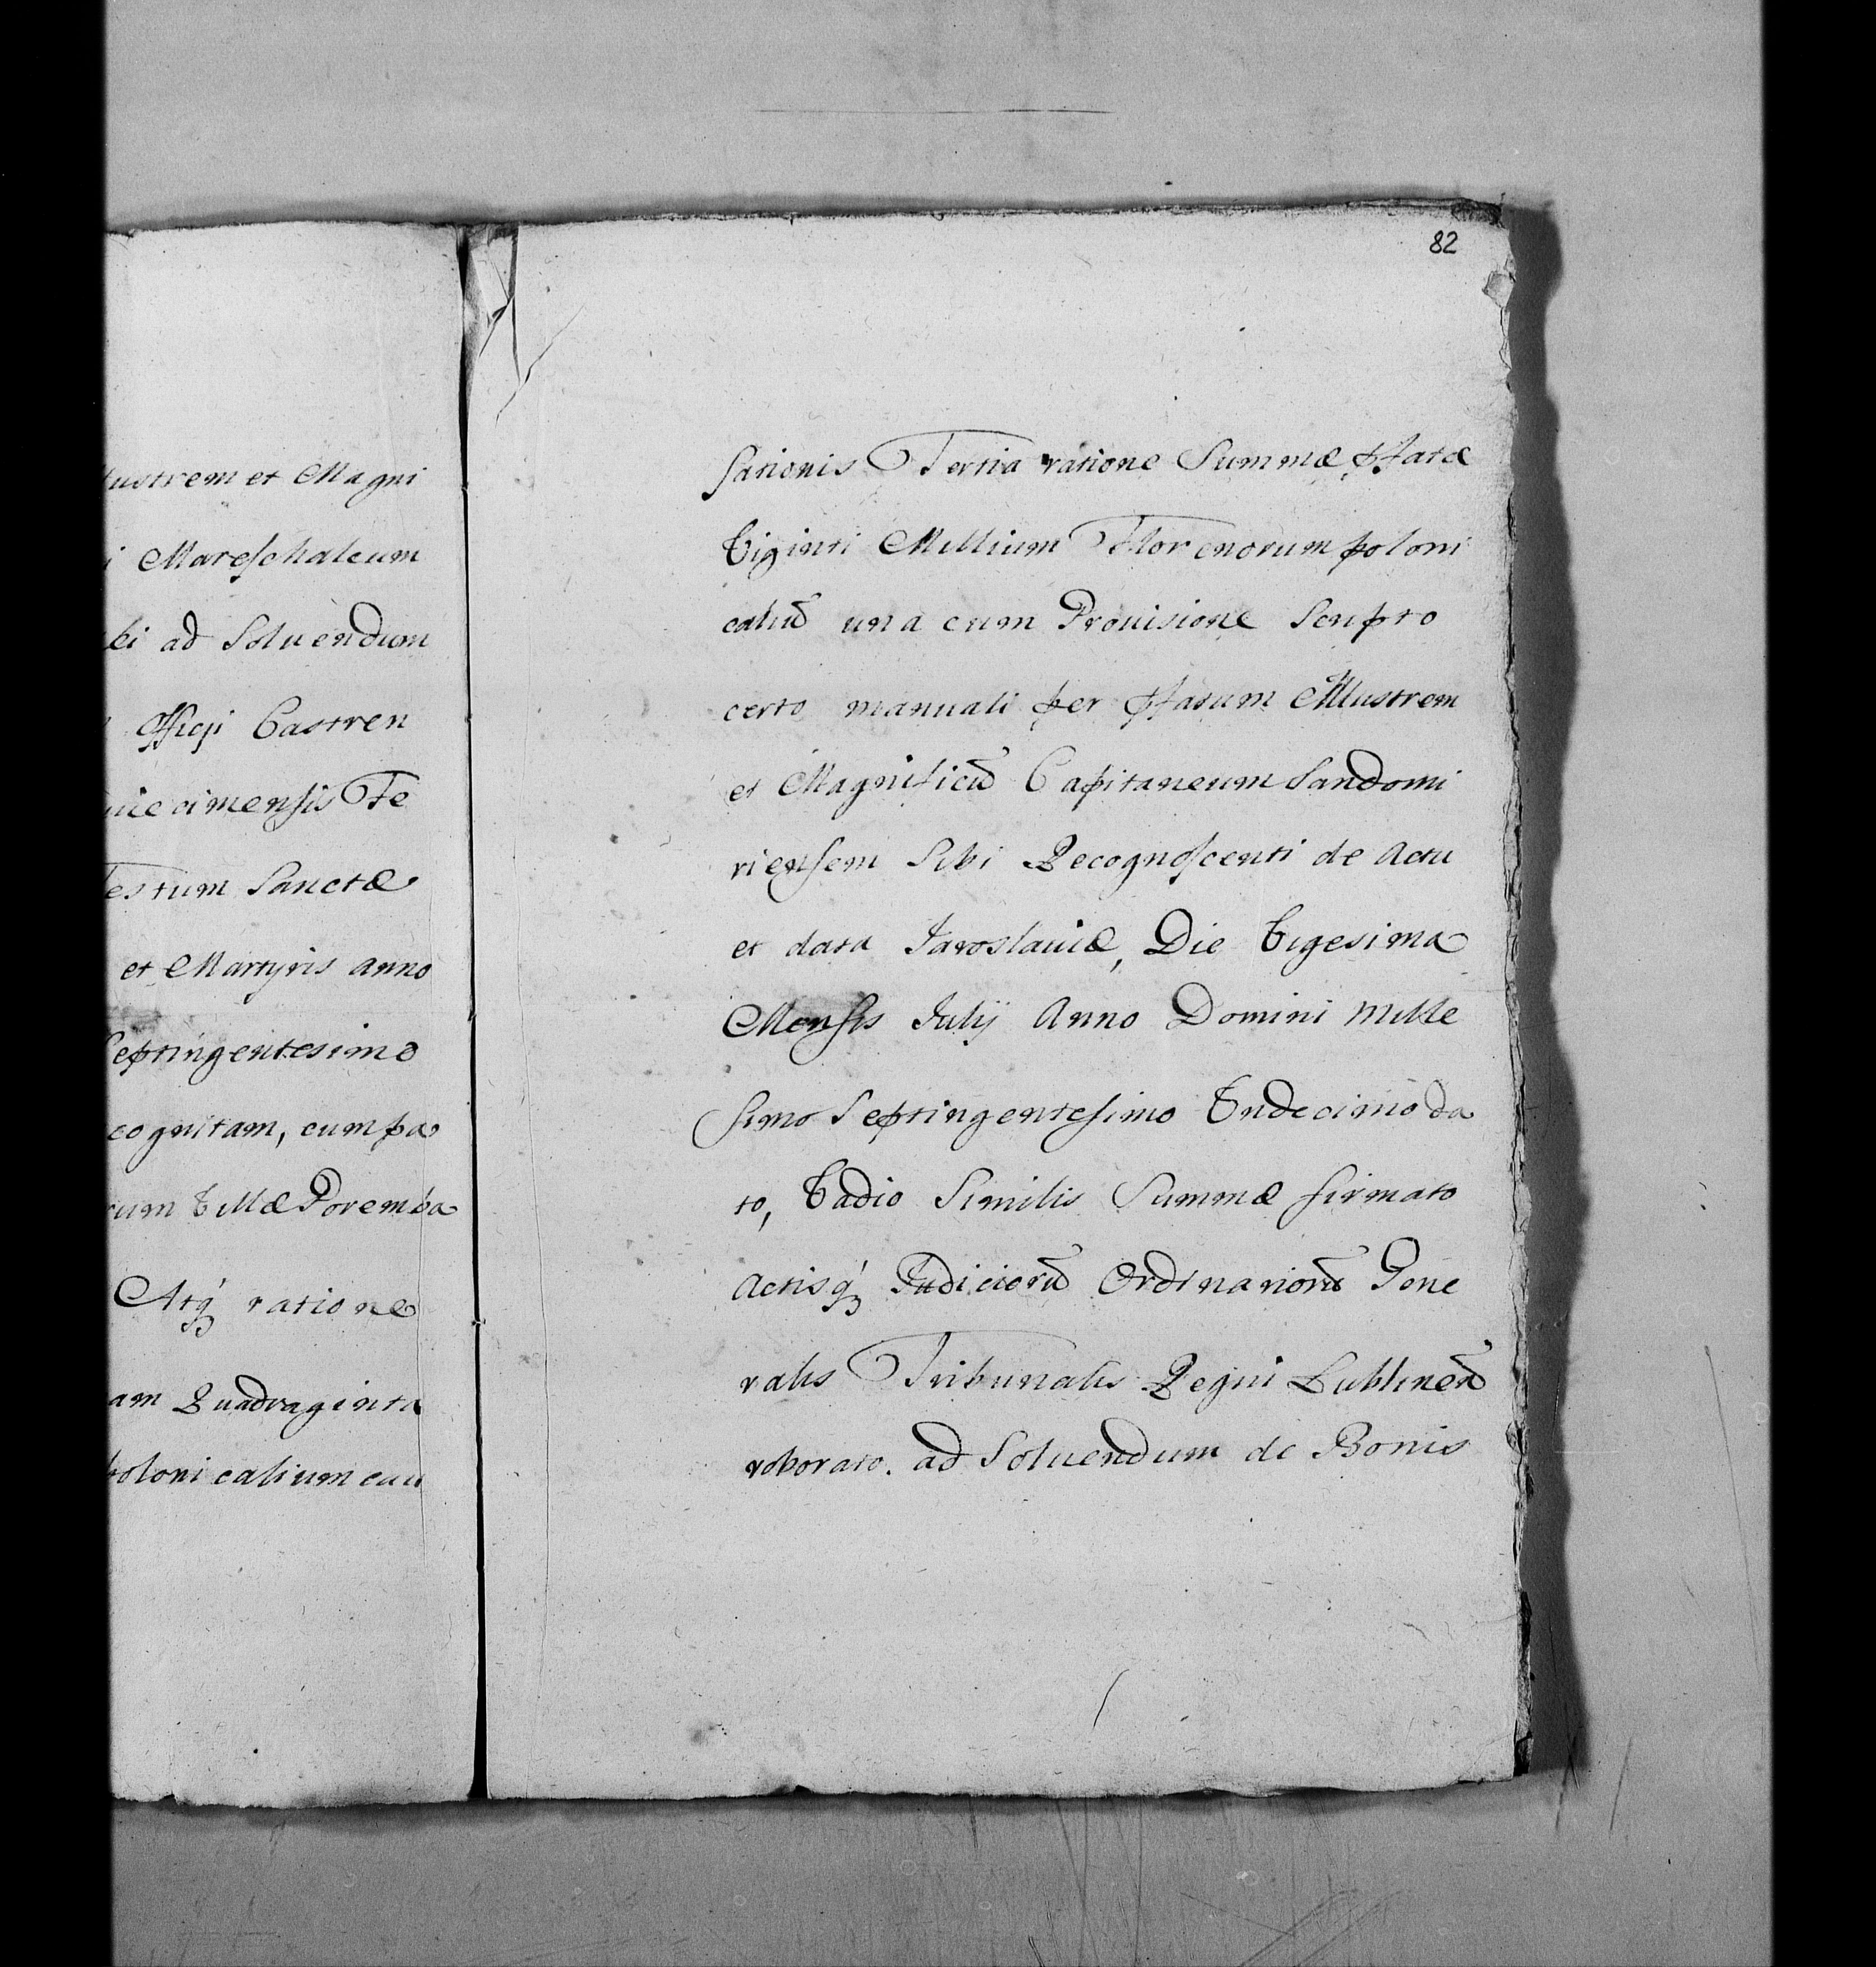 lustrem et Magni
i Mareschalcum
ki ad Soluendum
Officÿ Castren
uiecimensis Fe
Festum Sanctæ
et Martyris anno
Septingentesimo
cognitam, cum pa
rum Villæ Poremba
Atq́ ratione
am Quadraginta
polonicalium cau
82
sationis Tertia ratione Summæ pffatæ
Viginti Millium Florenorum poloni
caliu᷑ una cum Prouisione Scripto
certo manuali per pffatum Illustrem
et Magnificu᷑ Capitaneum Sandomi
riensem Sibi Recognoscenti de Actu
et data Jaroslauiæ, Die Vigesima
Mensis Julÿ Anno Domini Mille
simo Septingentesimo Undecimo da
to, Vadio Similis Summæ firmato
Actisq́ Judicioru᷑ Ordinarioru᷑ Gene
ralis Tribunalis Regni Lublinen᷑
roborato. ad Soluendum de Bonis